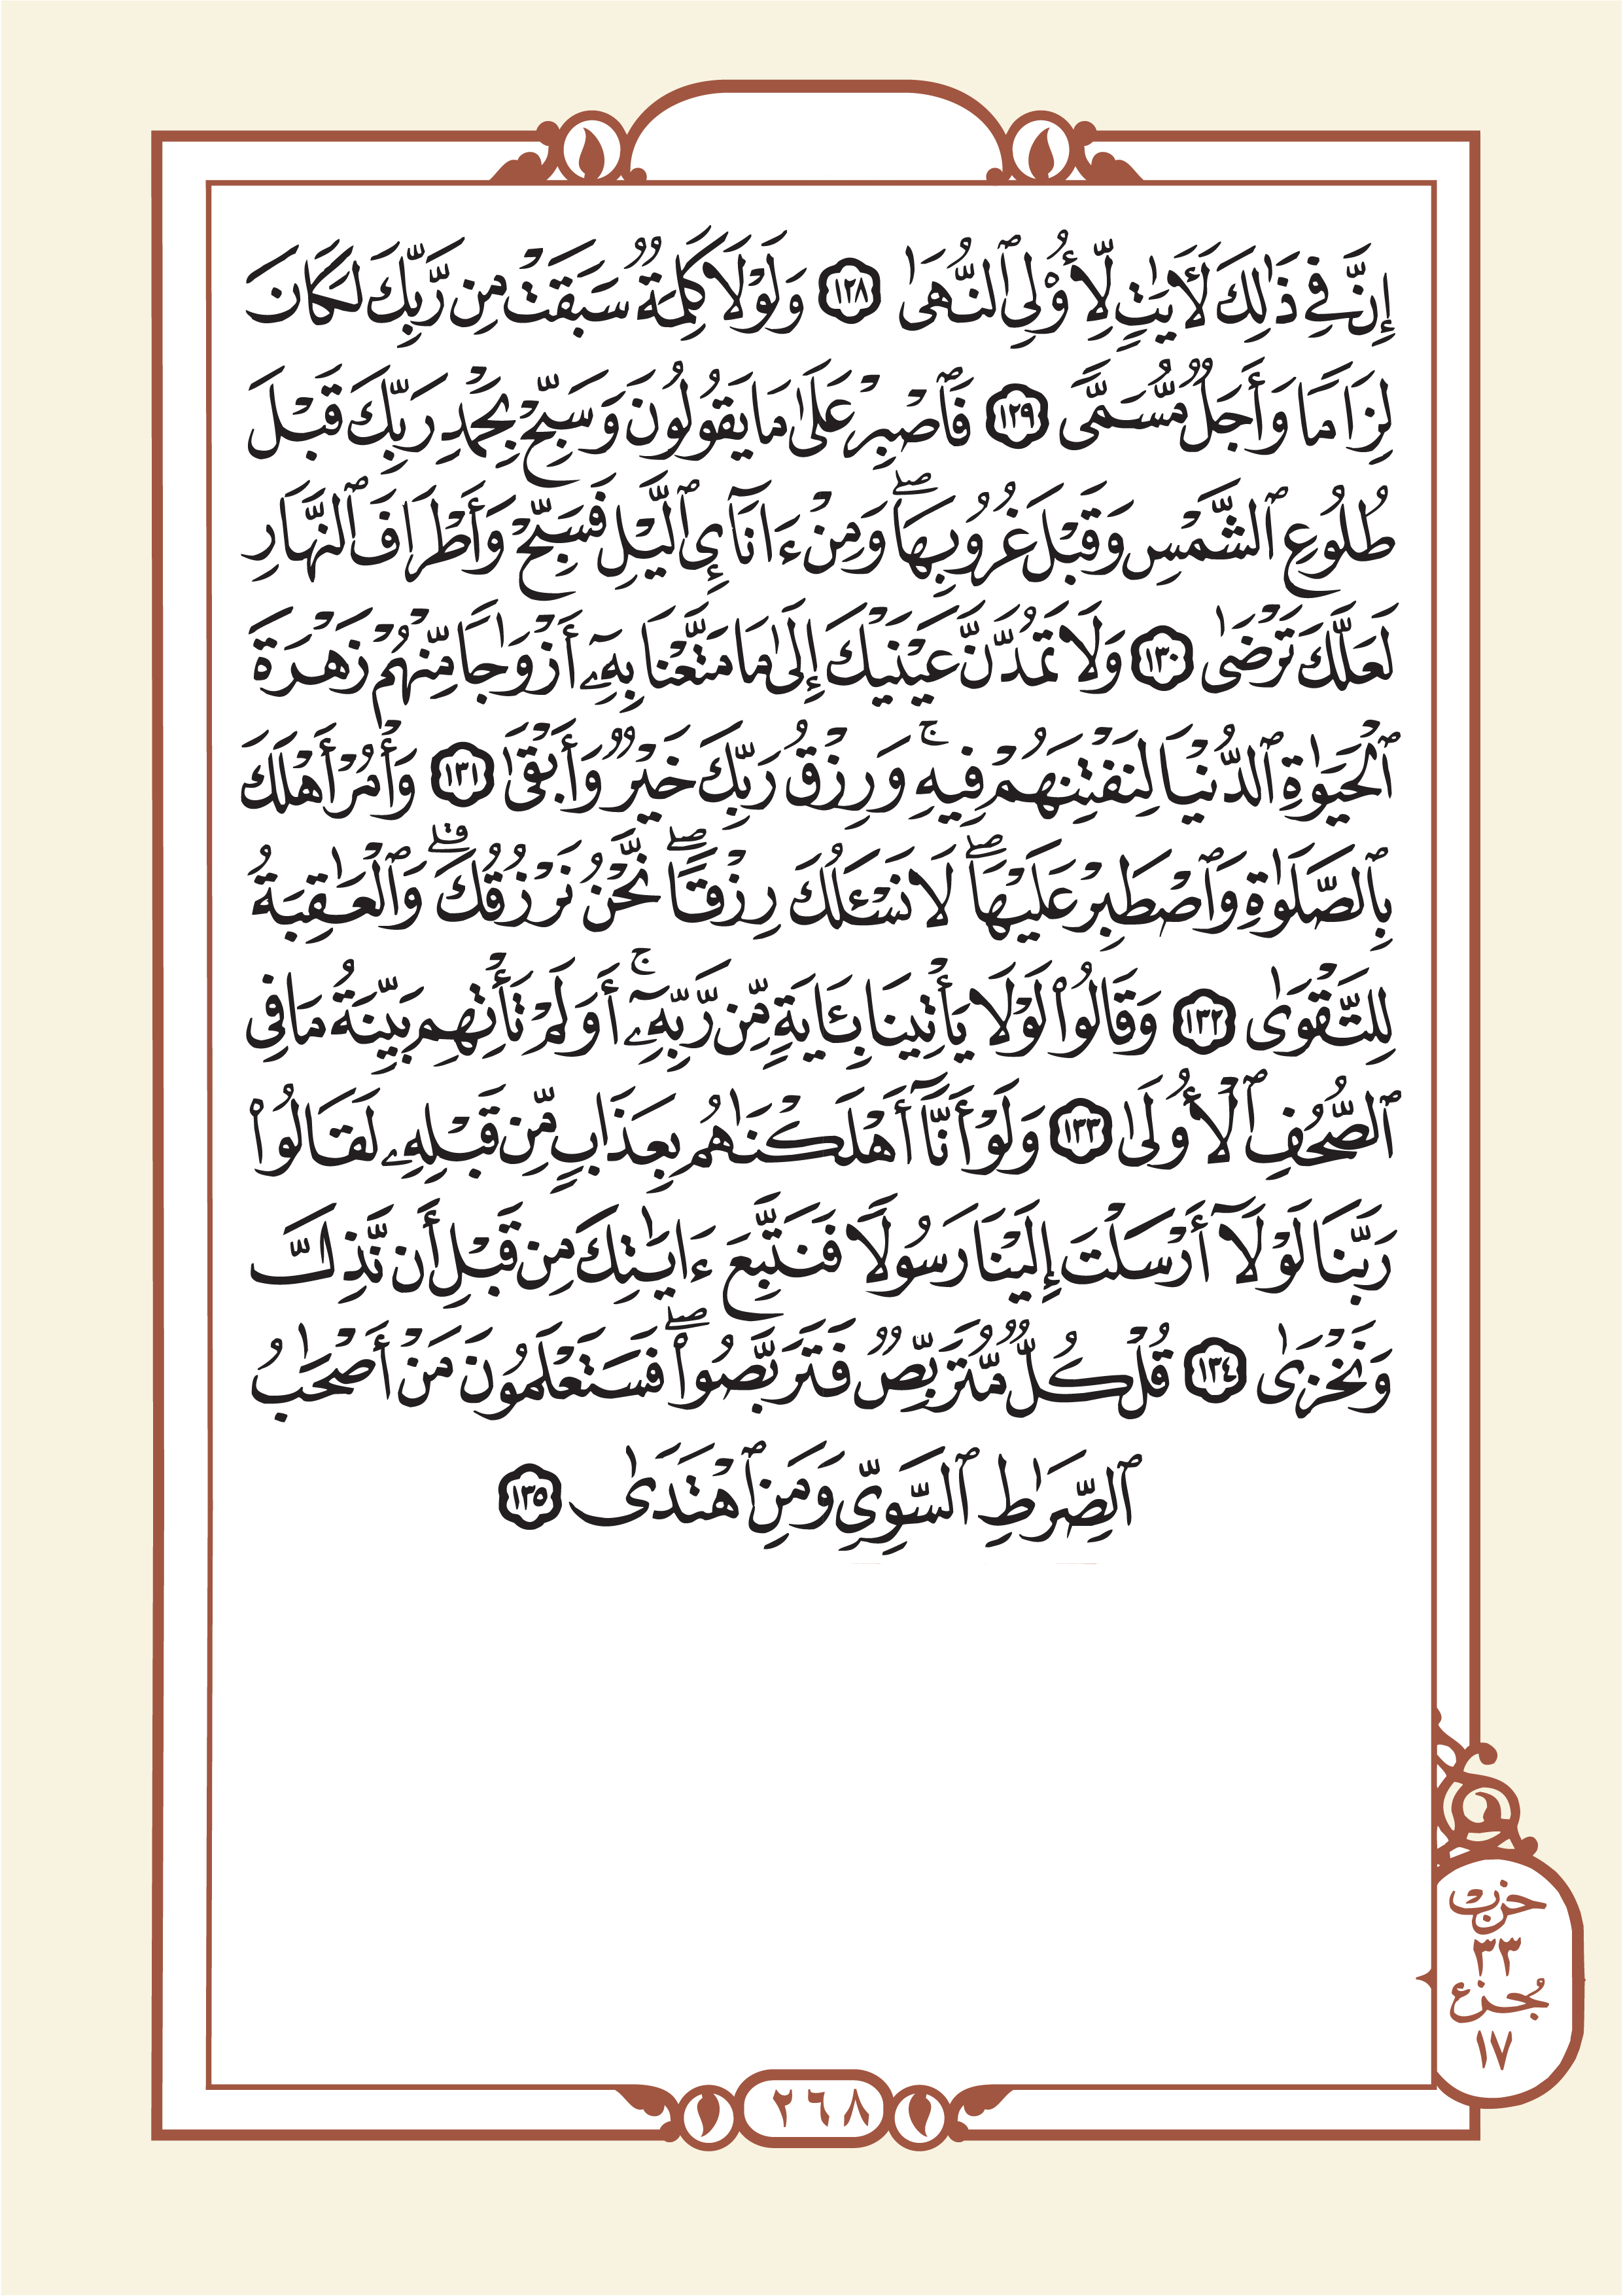 إِنَّ فِي ذَٰلِكَ لَأَيَٰتٖ لِّأُوْلِي ٱلنُّهَىٰ ١٢٨ وَلَوۡلَا كَلِمَةٞ سَبَقَتۡ مِن رَّبِّكَ لَكَانَ
لِزَامٗا وَأَجَلٞ مُّسَمّٗى ١٢٩ فَٱصۡبِرۡ عَلَىٰ مَا يَقُولُونَ وَسَبِّحۡ بِحَمۡدِ رَبِّكَ قَبۡلَ
طُلُوعِ ٱلشَّمۡسِ وَقَبۡلَ غُرُوبِهَاۖ وَمِنۡ ءَانَآيِٕ ٱلَّيۡلِ فَسَبِّحۡ وَأَطۡرَافَ ٱلنَّهَارِ
لَعَلَّكَ تَرۡضَىٰ ١٣٠ وَلَا تَمُدَّنَّ عَيۡنَيۡكَ إِلَىٰ مَا مَتَّعۡنَا بِهِۦٓ أَزۡوَٰجٗا مِّنۡهُمۡ زَهۡرَةَ
ٱلۡحَيَوٰةِ ٱلدُّنۡيَا لِنَفۡتِنَهُمۡ فِيهِۚ وَرِزۡقُ رَبِّكَ خَيۡرٞ وَأَبۡقَىٰ ١٣١ وَأۡمُرۡ أَهۡلَكَ
بِٱلصَّلَوٰةِ وَٱصۡطَبِرۡ عَلَيۡهَاۖ لَا نَسۡـَٔلُكَ رِزۡقٗاۖ نَّحۡنُ نَرۡزُقُكَۗ وَٱلۡعَٰقِبَةُ
لِلتَّقۡوَىٰ ١٣٢ وَقَالُواْ لَوۡلَا يَأۡتِينَا بِـَٔايَةٖ مِّن رَّبِّهِۦٓۚ أَوَلَمۡ تَأۡتِهِم بَيِّنَةُ مَا فِي
ٱلصُّحُفِ ٱلۡأُولَىٰ ١٣٣ وَلَوۡ أَنَّآ أَهۡلَكۡنَٰهُم بِعَذَابٖ مِّن قَبۡلِهِۦ لَقَالُواْ
رَبَّنَا لَوۡلَآ أَرۡسَلۡتَ إِلَيۡنَا رَسُولٗا فَنَتَّبِعَ ءَايَٰتِكَ مِن قَبۡلِ أَن نَّذِلَّ
وَنَخۡزَىٰ ١٣٤ قُلۡ كُلّٞ مُّتَرَبِّصٞ فَتَرَبَّصُواْۖ فَسَتَعۡلَمُونَ مَنۡ أَصۡحَٰبُ
ٱلصِّرَٰطِ ٱلسَّوِيِّ وَمَنِ ٱهۡتَدَىٰ ١٣٥
حزب
٣٣
جزء
١٧
٢٦٨